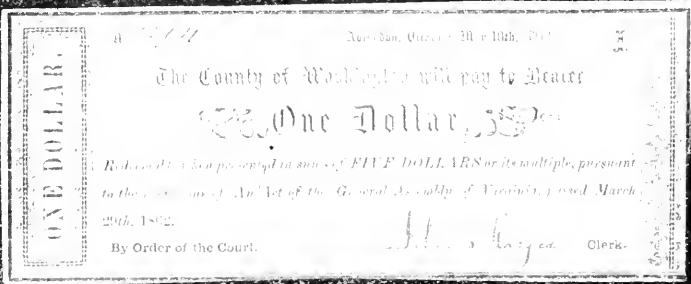 ONE DOLLAR.
The County of Washington will pay to Bearer
One Dollar,
Redeemable when presented in sums of FIVE DOLLARS or its multiple, pursuant
to the of An Act of the General Assembly of Virginia, passed March
29th, 1862.
By Order of the Court. Clerk.